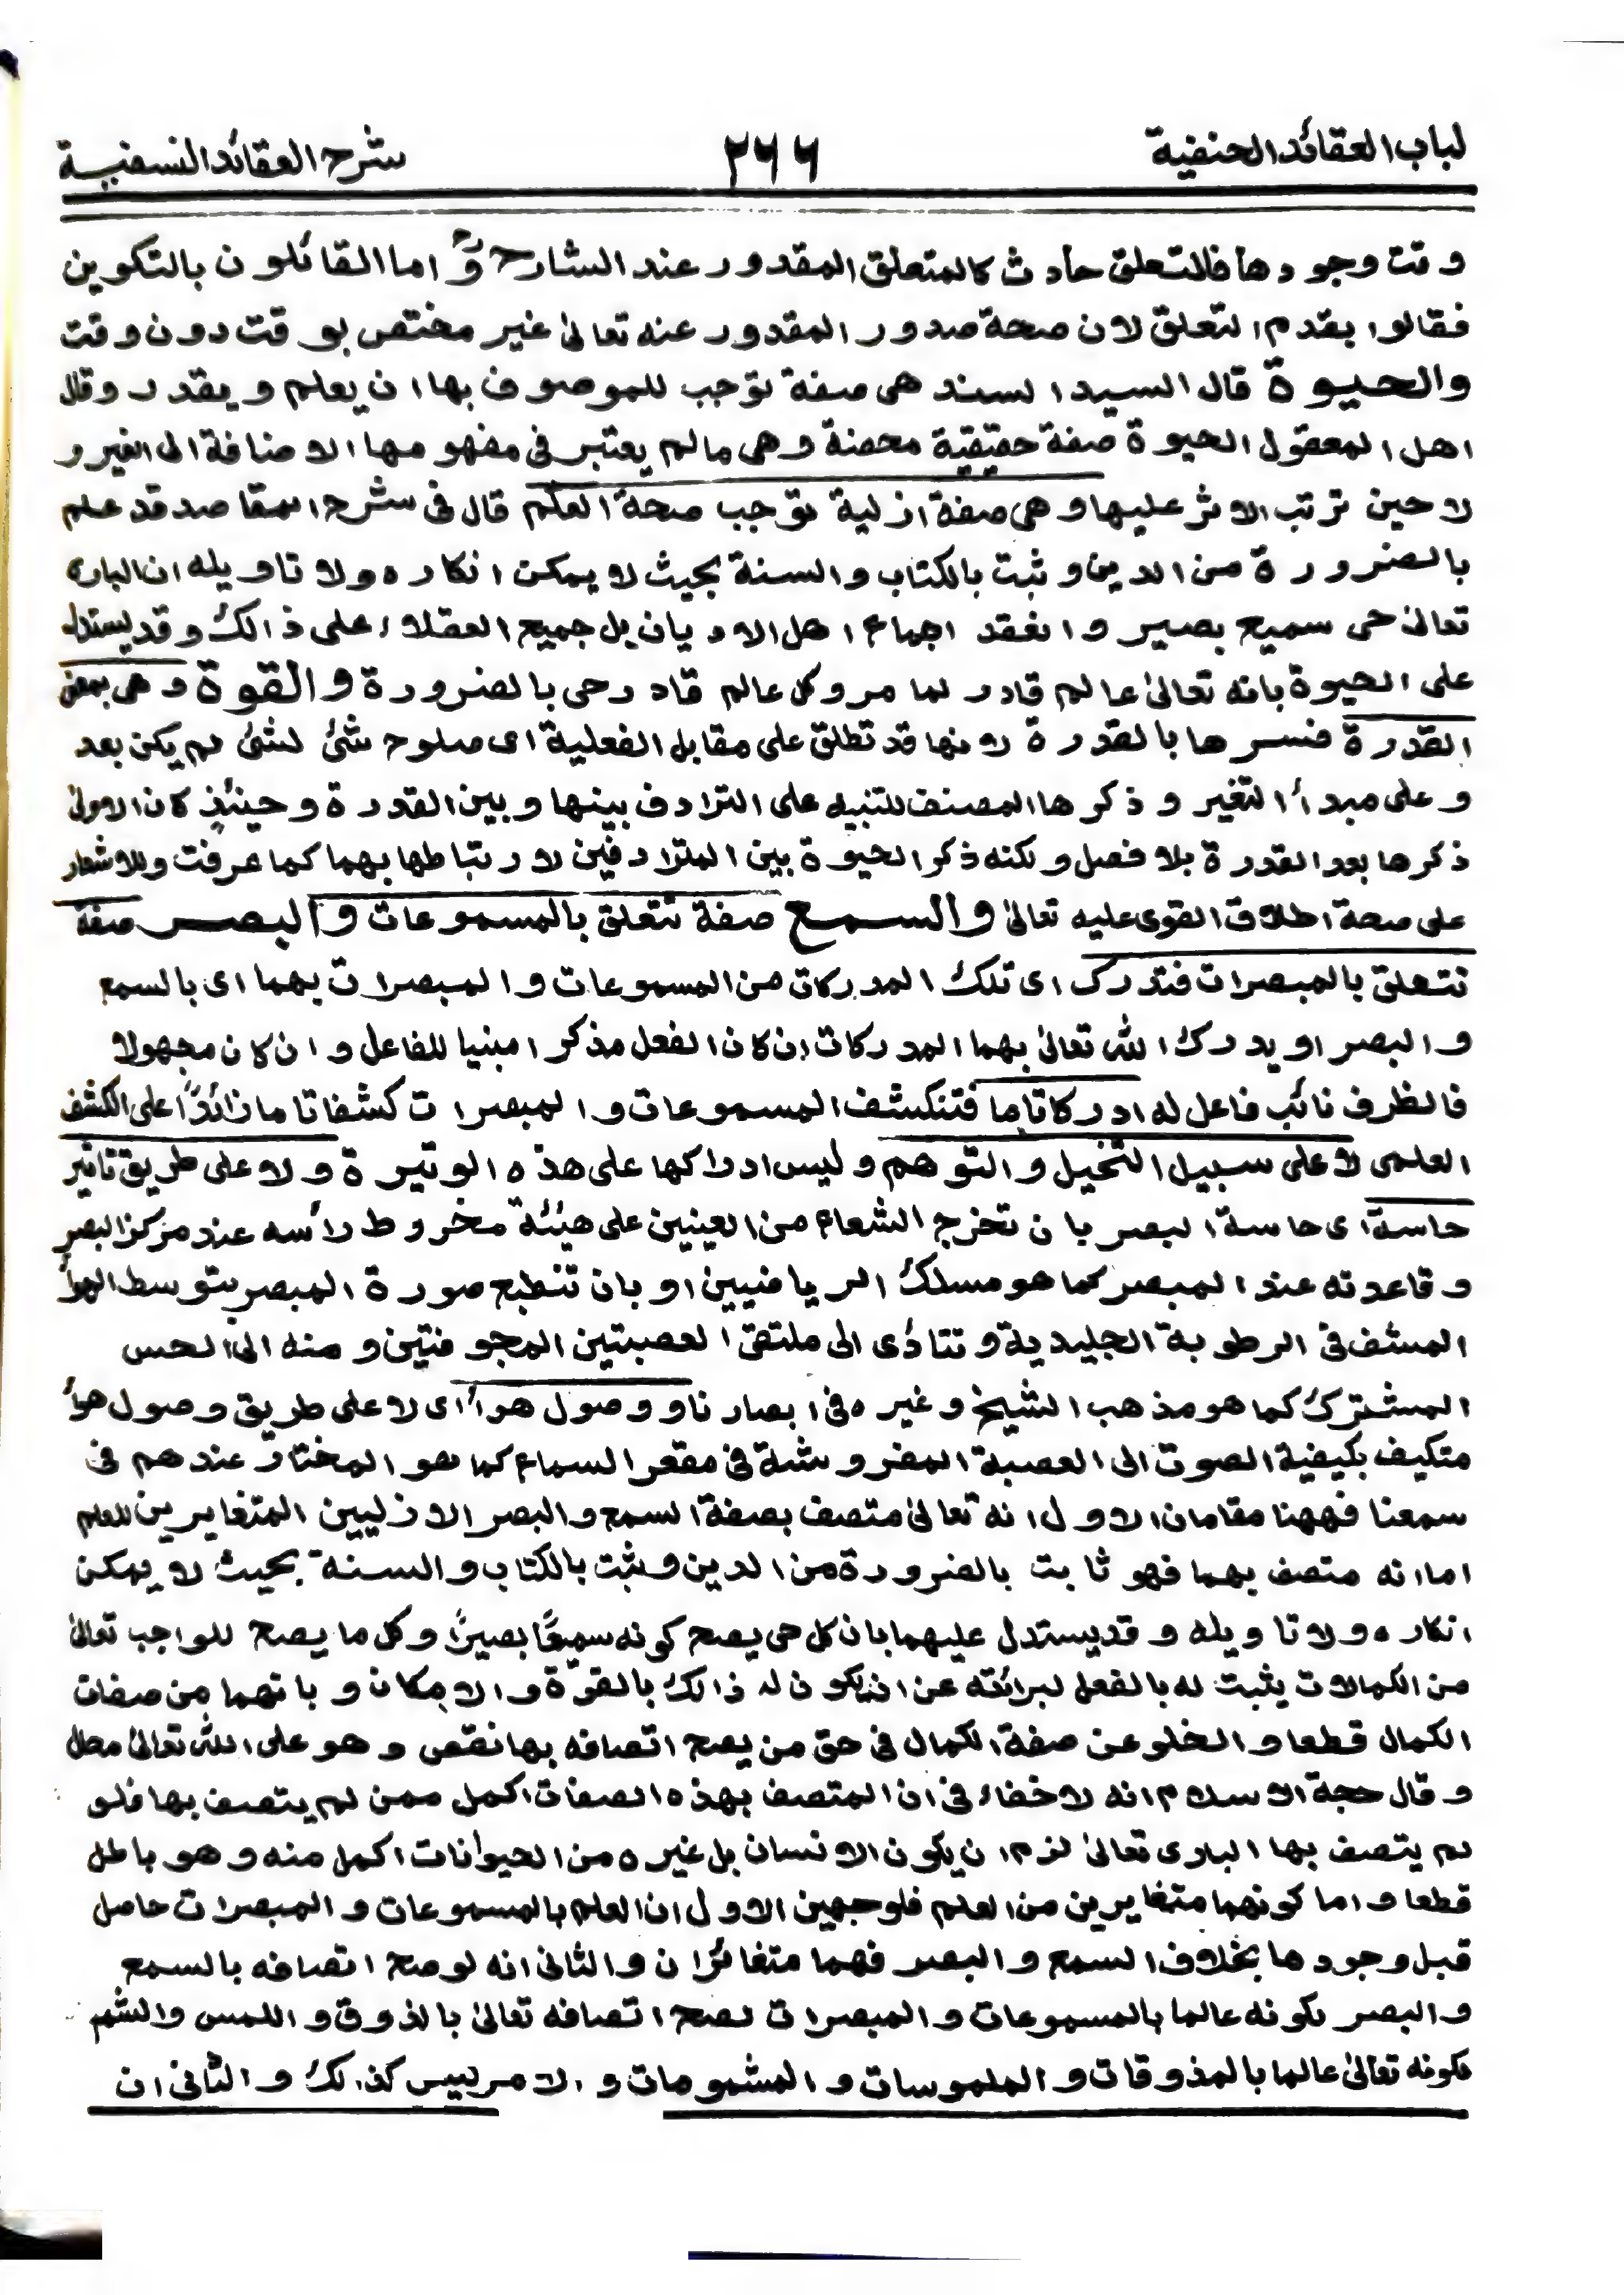 لباب العقائد الحنفية
٢٦٦
شرح العقائد النسفية
وقت وجودها فالتعلق حادث كالمتعلق المقدور عند الشارح رح واما القائلون بالتكوين
فقالوا بقدم التعلق لان صحة صدور المقدور عنه تعالىٰ غير مختص بوقت دون وقت
والحيوة قال السيد السند هى صفة توجب للموصوف بها ان يعلم ويقدر وقال
اهل المعقول الحيوة صفة حقيقية محضة وهى مالم يعتبر فى مفهومها الاضافة الى الغير و
لا حين ترتب الاثر عليها وهى صفة ازلية توجب صحة العلم قال فى شرح المقاصد قد علم
بالضرورة من الدين وثبت بالكتاب والسنة بحيث لا يمكن انكاره ولا تاويله ان البارى
تعالىٰ حى سميع بصير وانعقد اجماع اهل الاديان بل جميع العقلاء على ذالك وقد يستدل
على الحيوة بانه تعالىٰ عالم قادر لما مر وكل عالم قادر حى بالضرورة والقوة وهى بمعنى
القدرة فسرها بالقدرة لانها قد تطلق على مقابل الفعلية اى صلوح شئ لشئ لم يكن بعد
وعلى مبدأ التغير وذكرها المصنف للتنبيه على الترادف بينها وبين القدرة وحينئذٍ كان الاولىٰ
ذكرها بعد القدرة بلا فصل ولكنه ذكر الحيوة بين المترادفين لارتباطها بهما كما عرفت وللاشعار
على صحة اطلاق القوى عليه تعالىٰ والسمع صفة تتعلق بالمسموعات والبصر صفة
تتعلق بالمبصرات فتدرك اى تلك المدركات من المسموعات والمبصرات بهما اى بالسمع
والبصر او يدرك الله تعالىٰ بهما المدركات ان كان الفعل مذكرا مبنيا للفاعل وان كان مجهولا
فالظرف نائب فاعل له ادركا تاما فتنكشف المسموعات والمبصرات كشفا تاما زائدًا على الكشف
العلمى لا على سبيل التخيل والتوهم وليس ادراكها على هذه الوتيرة ولا على طريق تاثير
حاسة اى حاسة البصر بان تخرج الشعاع من العينين على هيئة مخروط رأسه عند مركز البصر
وقاعدته عند المبصر كما هو مسلك الرياضيين او بان تنطبع صورة المبصر بتوسط الهوأ
المشف فى الرطوبة الجليدية وتتأدى الى ملتقى العصبتين المجوفتين ومنه الى الحس
المشترك كما هو مذهب الشيخ وغيره فى ابصارنا ووصول هوأ اى لا على طريق وصول هوأ
متكيف بكيفية الصوت الى العصبة المفروشة فى مقعر السماع كما هو المختار عندهم فى
سمعنا فههنا مقامان الاول انه تعالىٰ متصف بصفة السمع والبصر الازليين المتغايرين للعلم
اما انه متصف بهما فهو ثابت بالضرورة من الدين وثبت بالكتاب والسنة بحيث لا يمكن
انكاره ولا تاويله وقد يستدل عليهما بان كل حى يصح كونه سميعًا بصيرًا وكل ما يصح للواجب تعالىٰ
من الكمالات يثبت له بالفعل لبرائته عن ان يكون له ذالك بالقوّة والامكان وبانهما من صفات
الكمال قطعا والخلو عن صفة الكمال فى حق من يصح اتصافه بها نقص وهو على الله تعالىٰ محال
وقال حجة الاسلام انه لا خفاء فى ان المتصف بهذه الصفات اكمل ممن لم يتصف بها فلو
لم يتصف بها البارى تعالىٰ لزم ان يكون الانسان بل غيره من الحيوانات اكمل منه وهو باطل
قطعا واما كونهما متغايرين من العلم فلوجهين الاول ان العلم بالمسموعات والمبصرات حاصل
قبل وجودها بخلاف السمع والبصر فهما متغائران والثانى انه لو صح اتصافه بالسمع
والبصر بكونه عالما بالمسموعات والمبصرات لصح اتصافه تعالىٰ بالذوق واللمس والشم
بكونه تعالىٰ عالما بالمذوقات والملموسات والمشمومات والامر ليس كذالك والثانى ان